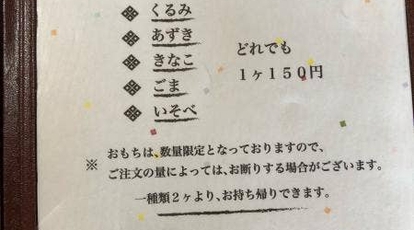 くるみ
あずき
きなこ
ごま
いそべ
どれでも
1ヶ150円
※ おもちは、数量限定となっておりますので、
ご注文の量によっては、お断りする場合がございます。
一種類2ヶより、お持ち帰りできます。